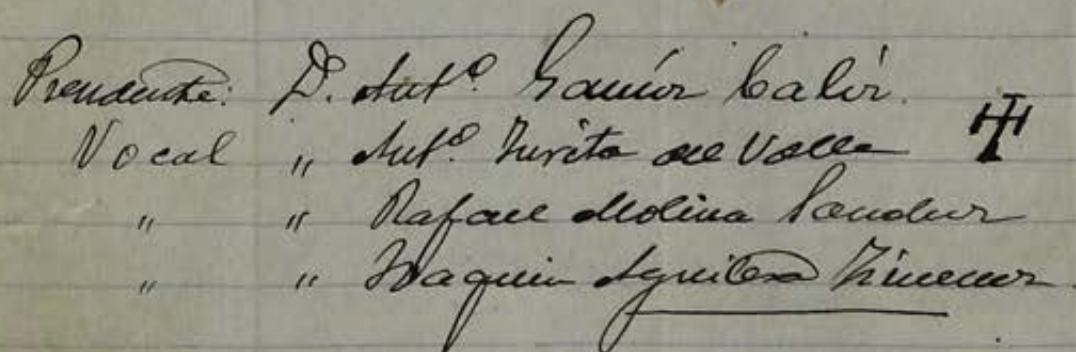 Presidente: D. Antº. Gamir Calir.
Vocal " Antº. Zurita del Valle
" " Rafael Molina
" " Joaquin Aguilera Ximenez